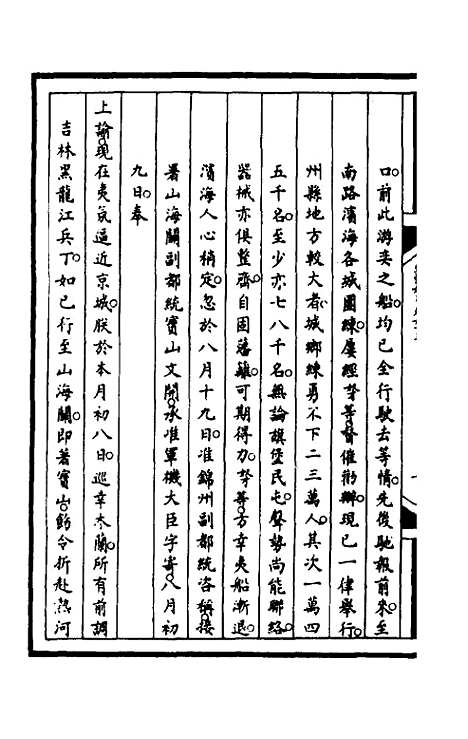 口。前此游奕之船。均已全行駛去等情。先後馳報前來。至
南路濱海各城團練。屢經㛃等督催衍辦。現已一律舉行。
州縣地方較大者。城鄉練勇不下二三萬人。其次一萬四
五千名。至少亦七八千名。無論旗堡民屯。聲勢尚能聯絡。
器械亦俱整齊。自固藩籬。可期得力。等方幸夷船漸退。
濱海人心稍定。忽於八月十九日。准錦州副都統咨稱。接
署山海關副都統寶山文開。承准軍機大臣字寄。八月初
九日。奉
上諭。現在夷氛逼近京城。朕於本月初八日。巡幸木蘭。所有前調
吉林黑龍江兵丁。如已行至山海關。即著寶山飭令折赴熱河